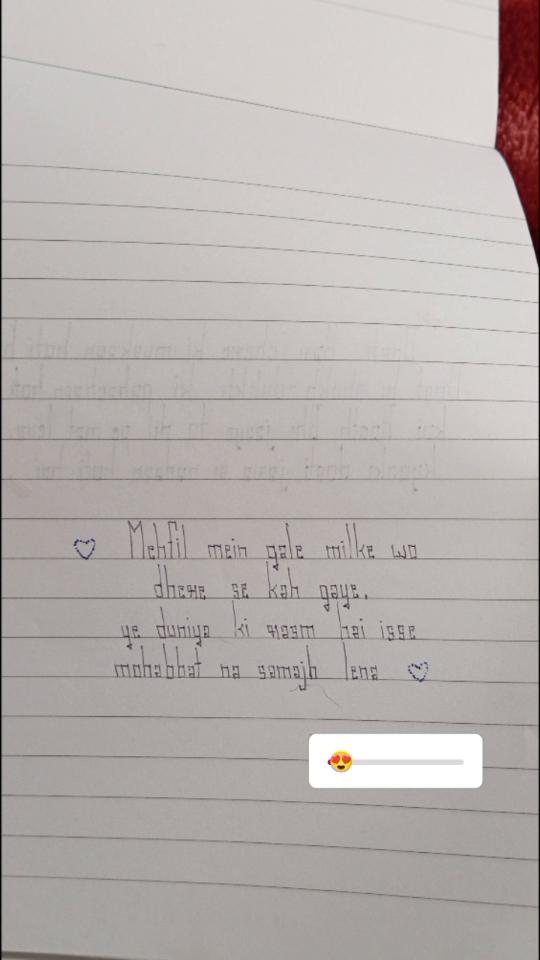 Mehfil mein gale milke wo
dhere se kah gaye.
ye duniya ki rasm hai isse
mohabbat na samajh lena